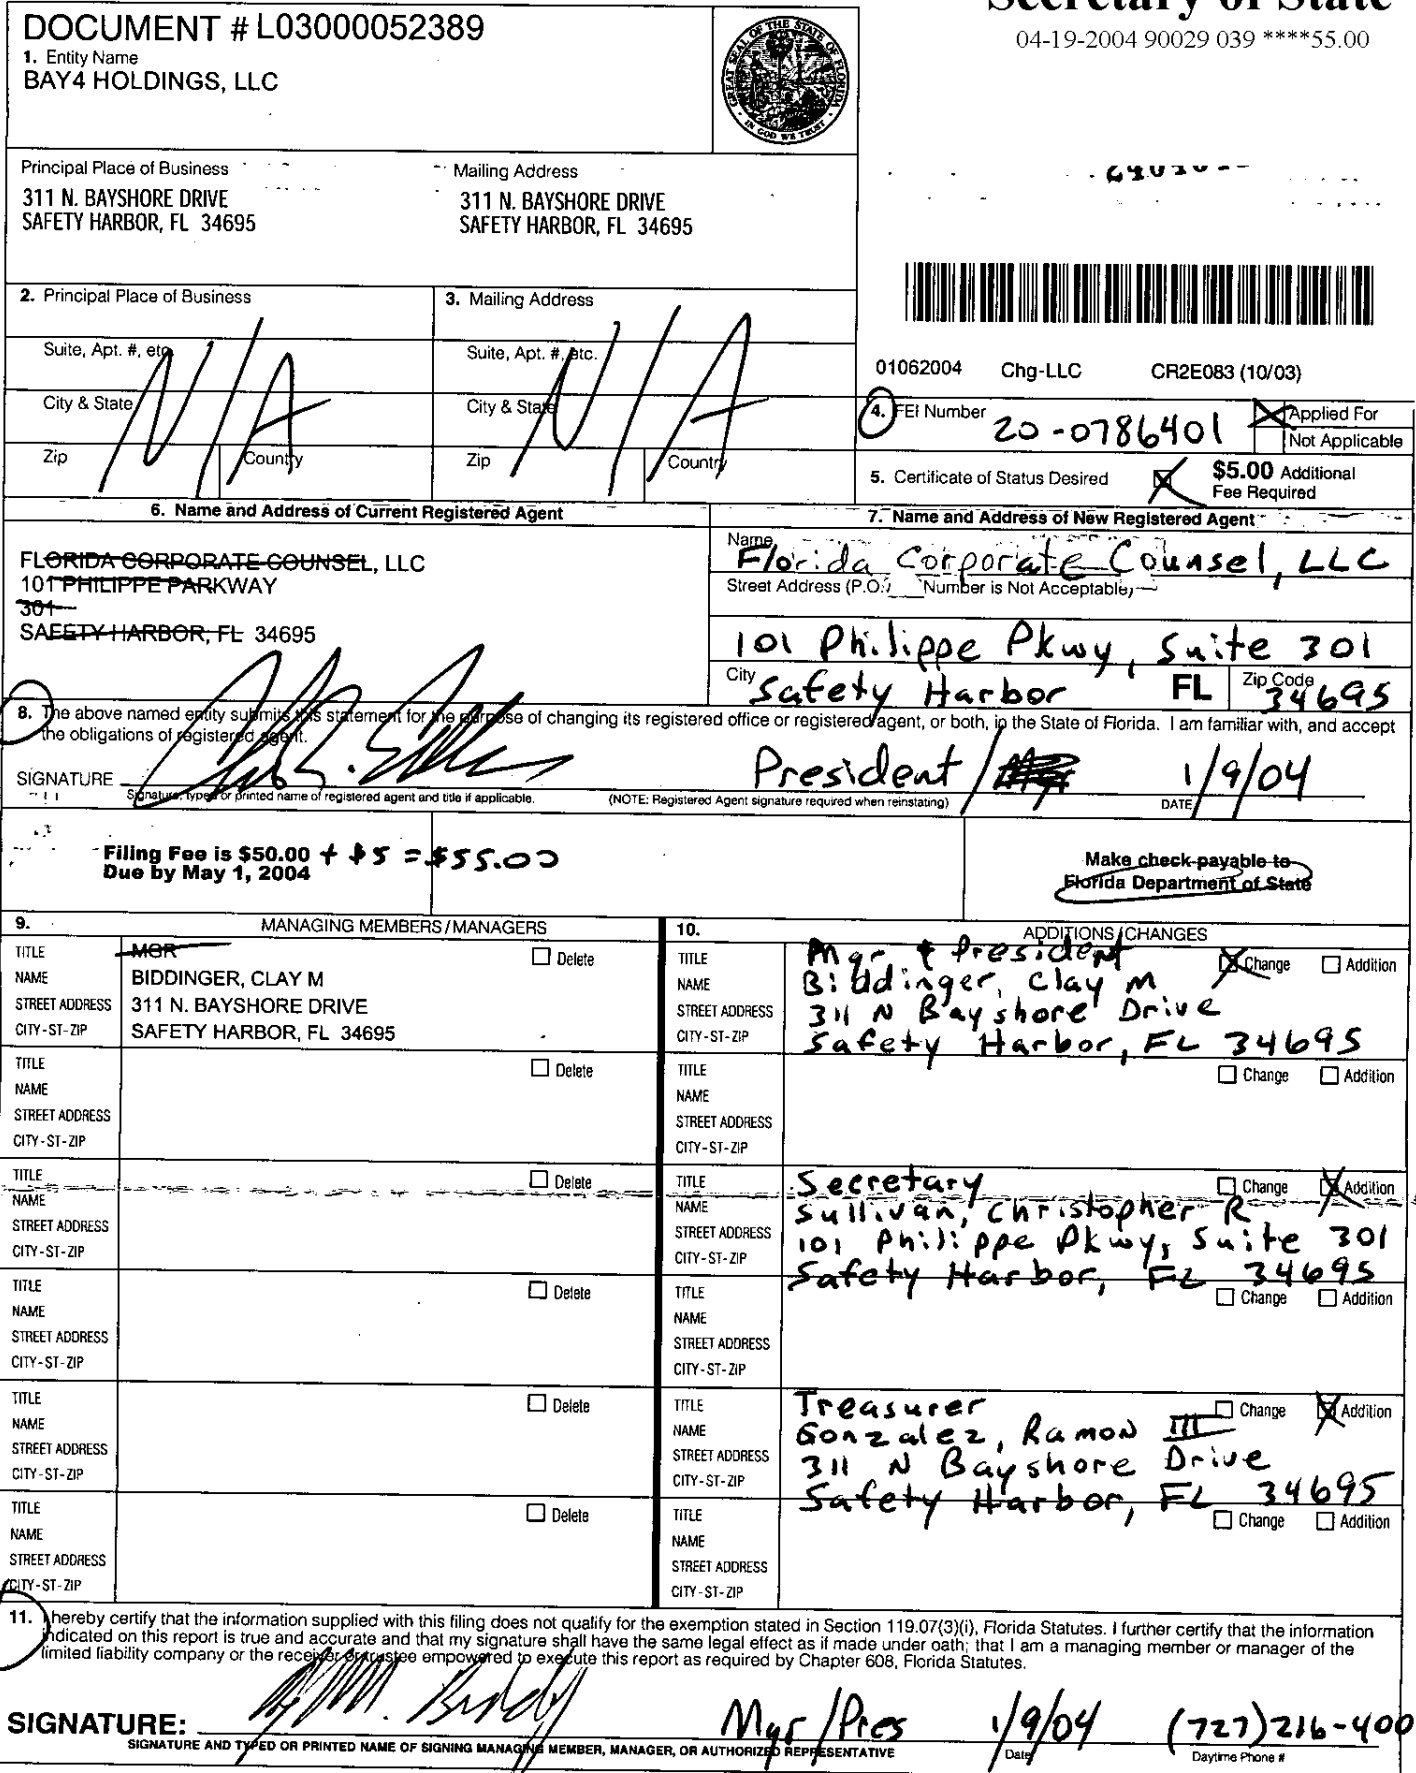 Secretary of State
04-19-2004 90029 039 ****55.00
DOCUMENT # L03000052389
1. Entity Name
BAY4 HOLDINGS, LLC
GREAT SEAL OF THE STATE OF FLORIDA
IN GOD WE TRUST
Principal Place of Business
311 N. BAYSHORE DRIVE
SAFETY HARBOR, FL 34695
Mailing Address
311 N. BAYSHORE DRIVE
SAFETY HARBOR, FL 34695
2. Principal Place of Business
Suite, Apt. #, etc.
City & State
Zip
Country
N/A
3. Mailing Address
Suite, Apt. #, etc.
City & State
Zip
Country
N/A
01062004 Chg-LLC CR2E083 (10/03)
4. FEI Number 20-0786401
Applied For
Not Applicable
5. Certificate of Status Desired
$5.00 Additional
Fee Required
6. Name and Address of Current Registered Agent
FLORIDA CORPORATE COUNSEL, LLC
101 PHILIPPE PARKWAY
301
SAFETY HARBOR, FL 34695
7. Name and Address of New Registered Agent
Name
Florida Corporate Counsel, LLC
Street Address (P.O. Number is Not Acceptable)
101 Philippe Pkwy, Suite 301
City Safety Harbor FL Zip Code 34695
8. The above named entity submits this statement for the purpose of changing its registered office or registered agent, or both, in the State of Florida. I am familiar with, and accept
the obligations of registered agent.
SIGNATURE President / 1/9/04
Signature, typed or printed name of registered agent and title if applicable. (NOTE: Registered Agent signature required when reinstating) DATE
Filing Fee is $50.00 + $5 = $55.00
Due by May 1, 2004
Make check payable to
Florida Department of State
9. MANAGING MEMBERS/MANAGERS
TITLE MGR Delete
NAME BIDDINGER, CLAY M
STREET ADDRESS 311 N. BAYSHORE DRIVE
CITY-ST-ZIP SAFETY HARBOR, FL 34695
TITLE Delete
NAME
STREET ADDRESS
CITY-ST-ZIP
TITLE Delete
NAME
STREET ADDRESS
CITY-ST-ZIP
TITLE Delete
NAME
STREET ADDRESS
CITY-ST-ZIP
TITLE Delete
NAME
STREET ADDRESS
CITY-ST-ZIP
TITLE Delete
NAME
STREET ADDRESS
CITY-ST-ZIP
10. ADDITIONS/CHANGES
TITLE Mgr & President Change Addition
NAME Biddinger, Clay M
STREET ADDRESS 311 N Bayshore Drive
CITY-ST-ZIP Safety Harbor, FL 34695
TITLE Change Addition
NAME
STREET ADDRESS
CITY-ST-ZIP
TITLE Secretary Change Addition
NAME Sullivan, Christopher R
STREET ADDRESS 101 Philippe Pkwy, Suite 301
CITY-ST-ZIP Safety Harbor, FL 34695
TITLE Change Addition
NAME
STREET ADDRESS
CITY-ST-ZIP
TITLE Treasurer Change Addition
NAME Gonzalez, Ramon III
STREET ADDRESS 311 N Bayshore Drive
CITY-ST-ZIP Safety Harbor, FL 34695
TITLE Change Addition
NAME
STREET ADDRESS
CITY-ST-ZIP
11. I hereby certify that the information supplied with this filing does not qualify for the exemption stated in Section 119.07(3)(i), Florida Statutes. I further certify that the information
indicated on this report is true and accurate and that my signature shall have the same legal effect as if made under oath; that I am a managing member or manager of the
limited liability company or the receiver or trustee empowered to execute this report as required by Chapter 608, Florida Statutes.
SIGNATURE: Mgr/Pres 1/9/04 (727)216-400
SIGNATURE AND TYPED OR PRINTED NAME OF SIGNING MANAGING MEMBER, MANAGER, OR AUTHORIZED REPRESENTATIVE Date Daytime Phone #